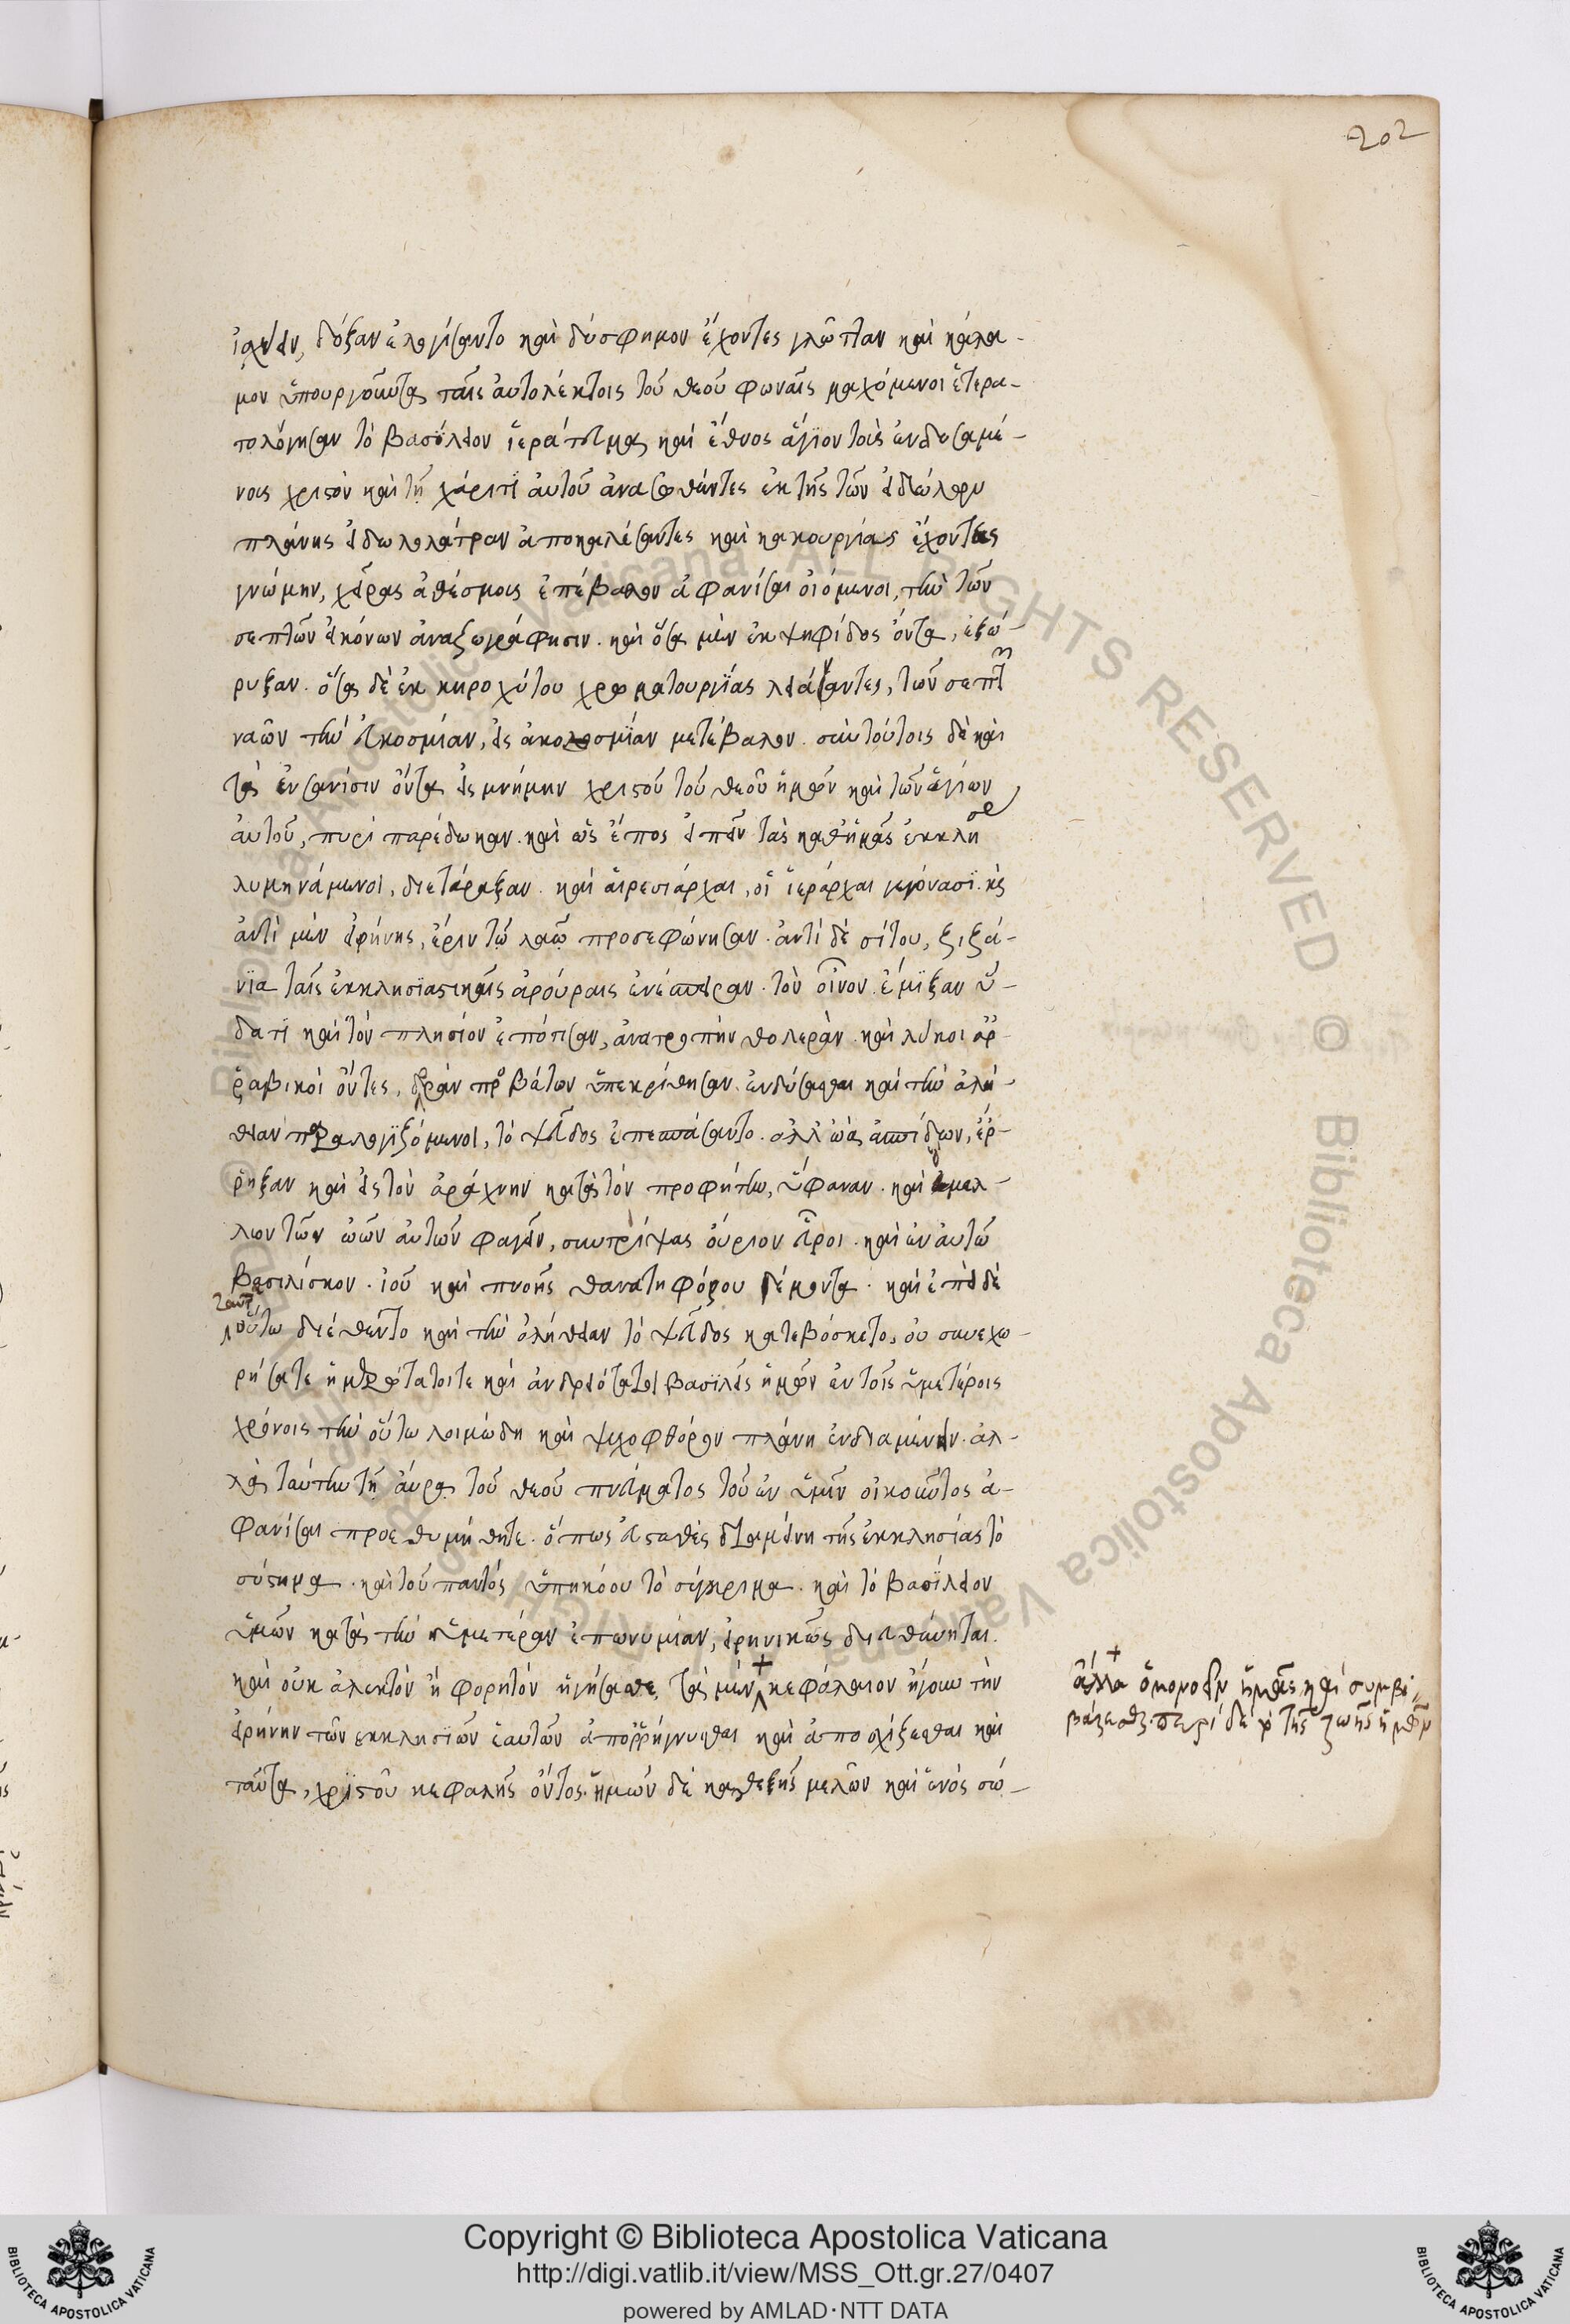 202
ἰσχύειν, δόξαν ἐλογίσαντο καὶ δύσφημον ἔχοντες γλῶτταν καὶ κάλα-
μον ὑπουργοῦντα ταῖς αὐτολέκτοις τοῦ θεοῦ φωναῖς μαχόμενοι ἑτερα-
τολόγησαν τὸ βασίλειον ἱεράτευμα καὶ ἔθνος ἅγιον τοῖς ἐνδυσαμέ-
νοις χριστὸν καὶ τῇ χάριτι αὐτοῦ ἀνασωθέντες ἐκ τῆς τῶν εἰδώλων
πλάνης εἰδωλολάτραν ἀποκαλέσαντες καὶ κακουργίας ἔχοντες
γνώμην, χεῖρας ἀθέσμοις ἐπέβαλον ἀφανίσαι οἰόμενοι, τὴν τῶν
σεπτῶν εἰκόνων ἀναζωγράφησιν. καὶ ὅσα μὲν ἐκ ψηφίδος ὄντα, ἐξώ-
ρυξαν. ὅσα δὲ ἐκ κηροχύτου χρωματουργίας λειάναντες, τῶν σεπτῶν
ναῶν τὴν εὐκοσμίαν, εἰς ἀκοσμίαν μετέβαλον. σὺν τούτοις δὲ καὶ
τὰ ἐν σανίσιν ὄντα εἰς μνήμην χριστοῦ τοῦ θεοῦ ἡμῶν καὶ τῶν ἁγίων
αὐτοῦ, πυρὶ παρέδωκαν. καὶ ὡς ἔπος εἰπεῖν τὰς καθ' ἡμᾶς ἐκκλησ
λυμηνάμενοι, διετάραξαν. καὶ αἱρεσιάρχαι, οἱ ἱεράρχαι γεγόνασι. καὶ
ἀντὶ μὲν εἰρήνης, ἔριν τῷ λαῷ προσεφώνησαν. ἀντὶ δὲ σίτου, ζιζά-
νια ταῖς ἐκκλησιαστικαῖς ἀρούραις ἐνέσπειραν. τὸν οἶνον ἔμιξαν ὕ-
δατι καὶ τὸν πλησίον ἐπότισαν, ἀνατροπὴν θολεράν. καὶ λύκοι ἀρ-
ραβικοὶ ὄντες, δορὰν προβάτων ὑπεκρίθησαν ἐνδύσασθαι καὶ τὴν ἀλή-
θειαν παραλογιζόμενοι, τὸ ψεῦδος ἐπεσπάσαντο. ἀλλ' ὠὰ ἀσπίδων, ἔρ-
ρηξαν καὶ εἰστὸν ἀράχνην κατὰ τὸν προφήτην, ὕφαναν. καὶ ὁ μέλ-
λων τῶν ὠῶν αὐτῶν φαγεῖν, συντρίψας οὔριον εὗροι. καὶ ἐν αὐτῷ
βασιλίσκον. ἰοῦ καὶ πνοῆς θανατηφόρου γέμοντα. καὶ ἐπεὶ δὲ
ταῦτα οὕτω διέθεντο καὶ τὴν ἀλήθειαν τὸ ψεῦδος κατεβόσκετο, οὐ συνεχω-
ρήσατε ἡμερώτατοί τε καὶ ἀνδρειότατοι βασιλεῖς ἡμῶν ἐν τοῖς ὑμετέροις
χρόνοις τὴν οὕτω λοιμώδη καὶ ψυχοφθόρον πλάνη ἐνδιαμένειν. ἀλ-
λὰ ταύτην τῇ αὔρᾳ τοῦ θεοῦ πνεύματος τοῦ ἐν ὑμῖν οἰκοῦντος ἀ-
φανίσαι προεθυμήθητε. ὅπως εὐσταθὲς διαμείνῃ τῆς ἐκκλησίας τὸ
σύστημα. καὶ τοῦ παντὸς ὑπηκόου τὸ σύγκριμα. καὶ τὸ βασίλειον
ὑμῶν κατὰ τὴν ὑμετέραν ἐπωνυμίαν, εἰρηνικῶς διευθύνηται.
καὶ οὐκ ἀνεκτὸν ἢ φορητὸν ἡγήσασθε, τὰ μὲν κεφάλαιον ἤγουν τὴν
εἰρήνην τῶν ἐκκλησιῶν ἑαυτῶν ἀπορρήγνυσθαι καὶ ἀποσχίζεσθαι καὶ
ταῦτα, χριστοῦ κεφαλῆς ὄντος. ἡμῶν δὲ καθεξῆς μελῶν καὶ ἑνὸς σώ-
ἄλλα ὁμονοεῖν ἡμᾶς καὶ συμβι
βάζεσθαι. περὶ δὲ τῆς ζωῆς ἡμῶν
Copyright © Biblioteca Apostolica Vaticana
http://digi.vatlib.it/view/MSS_Ott.gr.27/0407
powered by AMLAD·NTT DATA